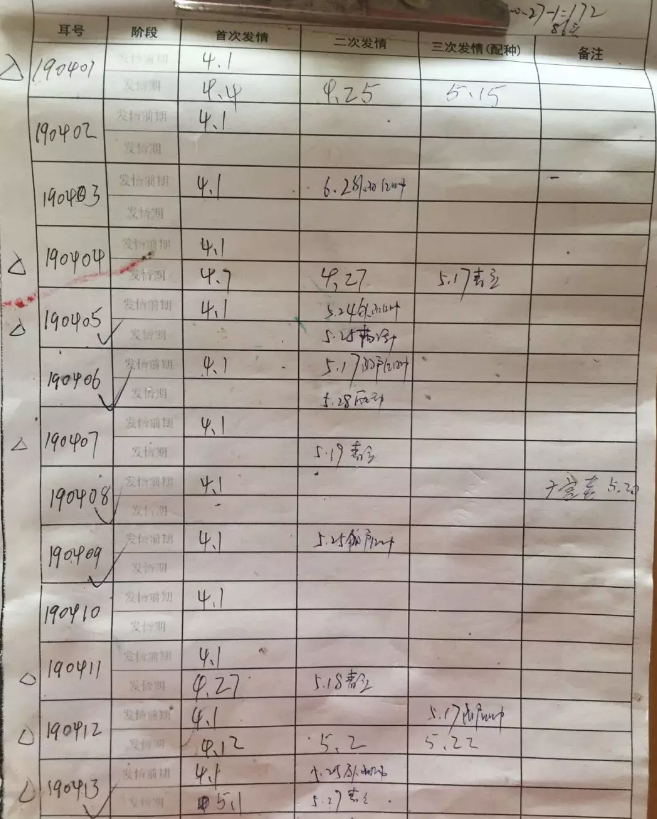 -27-1:172
耳号 阶段 首次发情 二次发情 三次发情(配种) 备注
190401 发情前期 4.1
发情期 4.4 4.25 5.15
190402 发情前期 4.1
发情期
190403 发情前期 4.1 6.2
发情期
190404 发情前期 4.1
发情期 4.7 4.27 5.17
190405 发情前期 4.1 5.24
发情期 5.25
190406 发情前期 4.1 5.17
发情期 5.28
190407 发情前期 4.1
发情期 5.19
190408 发情前期 4.1 5.20
发情期
190409 发情前期 4.1 5.25
发情期
190410 发情前期 4.1
发情期
190411 发情前期 4.1
发情期 4.27 5.18
190412 发情前期 4.1 5.17
发情期 4.12 5.2 5.22
190413 发情前期 4.1 5.25
发情期 5.1 5.27